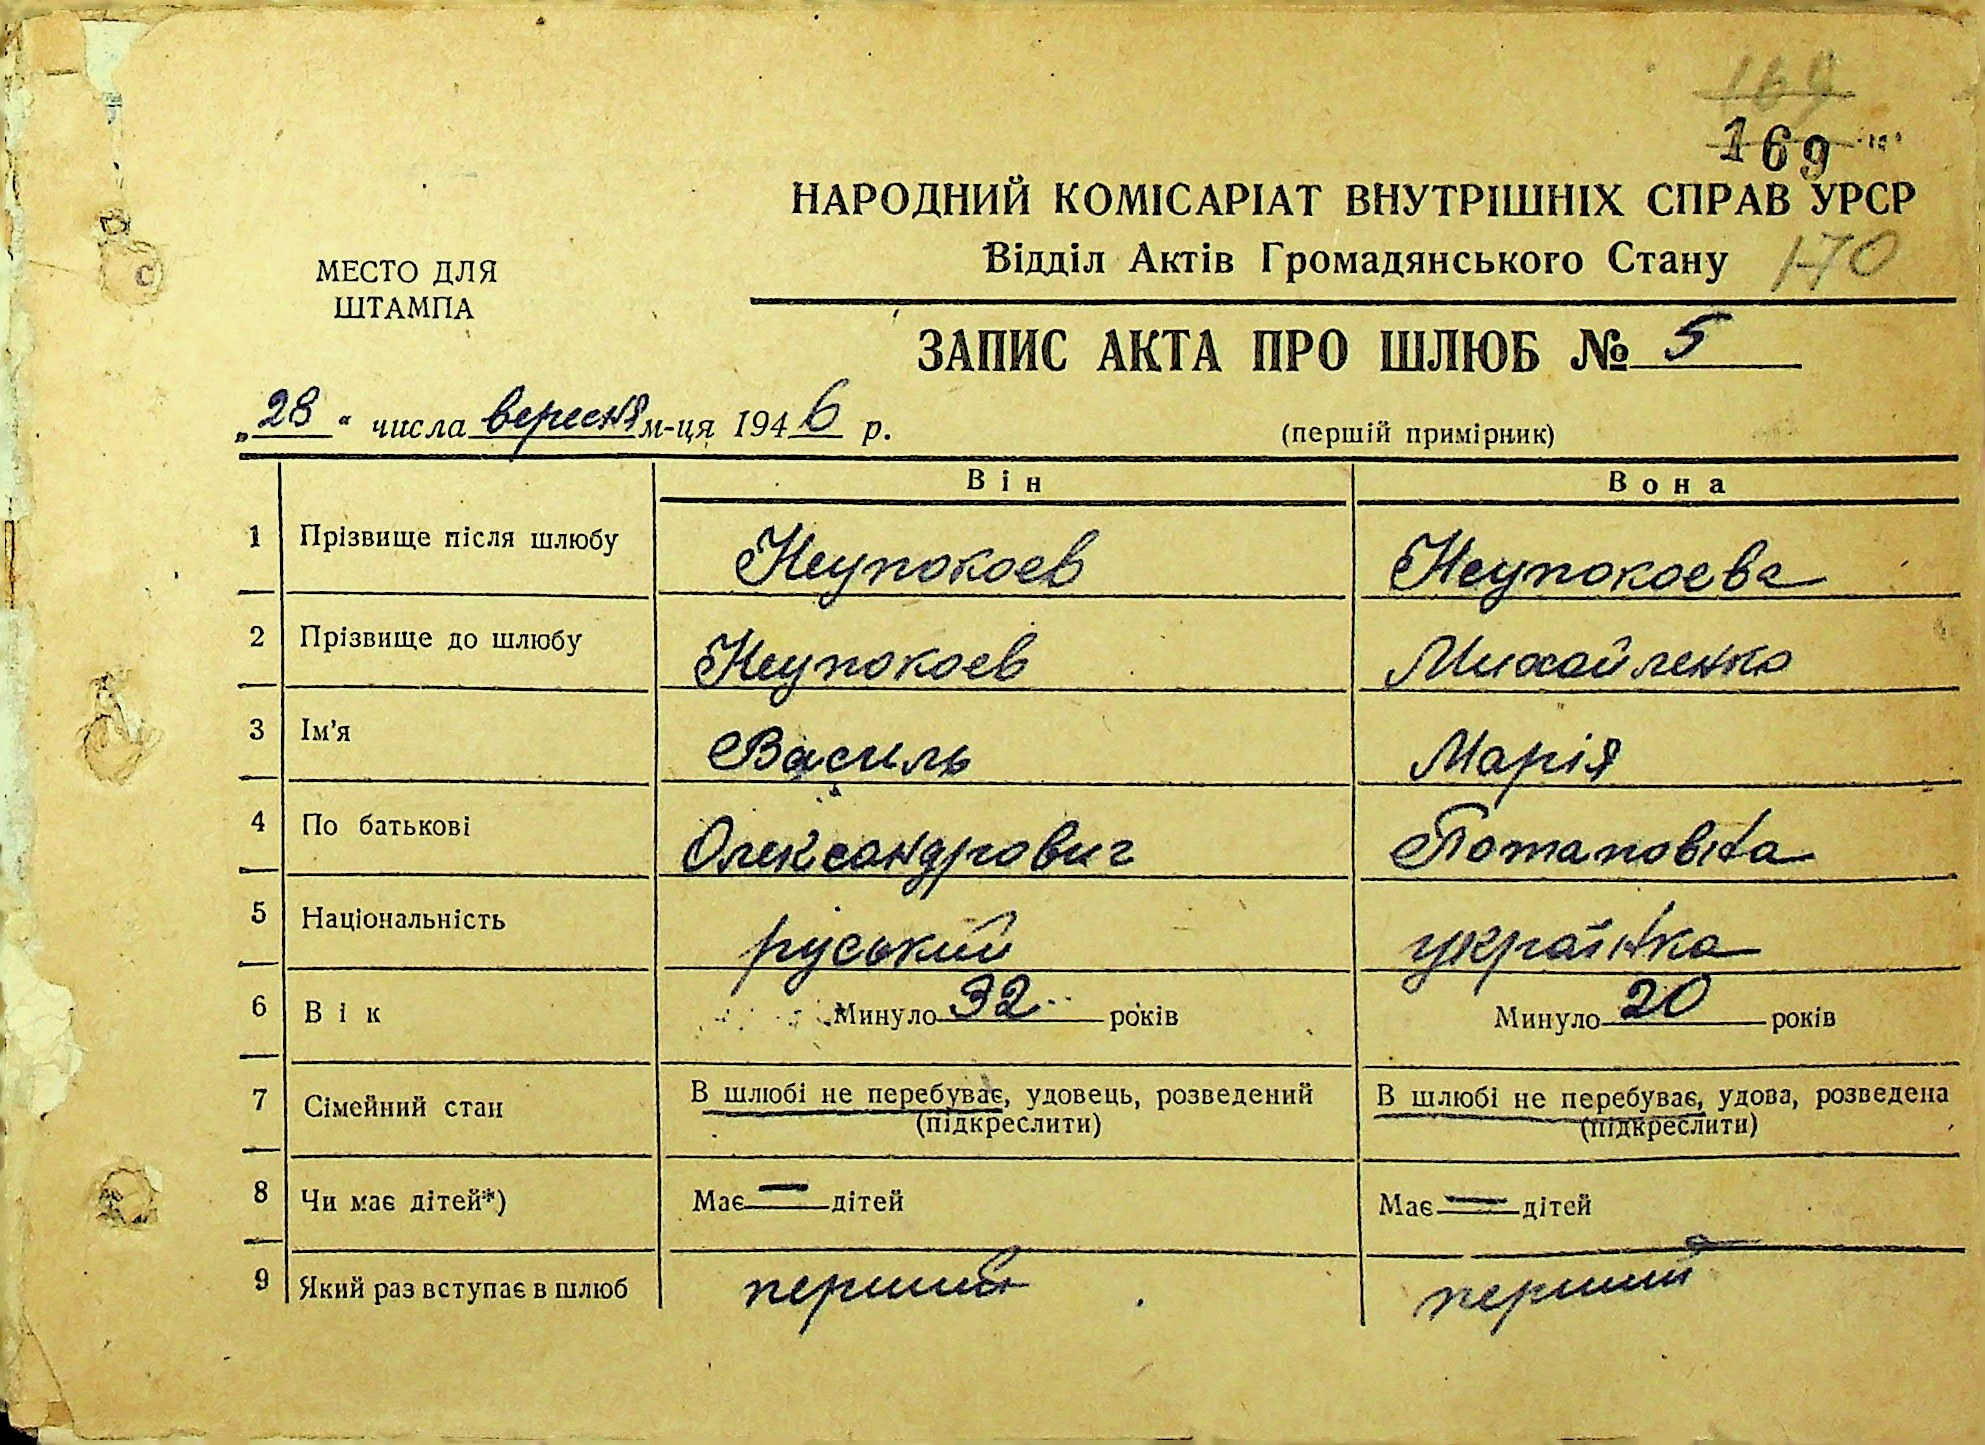 169
169
НАРОДНИЙ КОМІСАРІАТ ВНУТРІШНІХ СПРАВ УРСР
Відділ Актів Громадянського Стану 170
МЕСТО ДЛЯ
ШТАМПА
ЗАПИС АКТА ПРО ШЛЮБ № 5
„28“ числа вересня м-ця 1946 р. (першій примірник)
Він Вона
1 Прізвище після шлюбу Неупокоев Неупокоева
2 Прізвище до шлюбу Неупокоев Михайленко
3 Ім'я Василь Марія
4 По батькові Олександрович Потаповна
5 Національність руський українка
6 Вік Минуло 32 років Минуло 20 років
7 Сімейний стан В шлюбі не перебуває, удовець, розведений В шлюбі не перебуває, удова, розведена
(підкреслити) (підкреслити)
8 Чи має дітей*) Має — дітей Має — дітей
9 Який раз вступає в шлюб перший перший